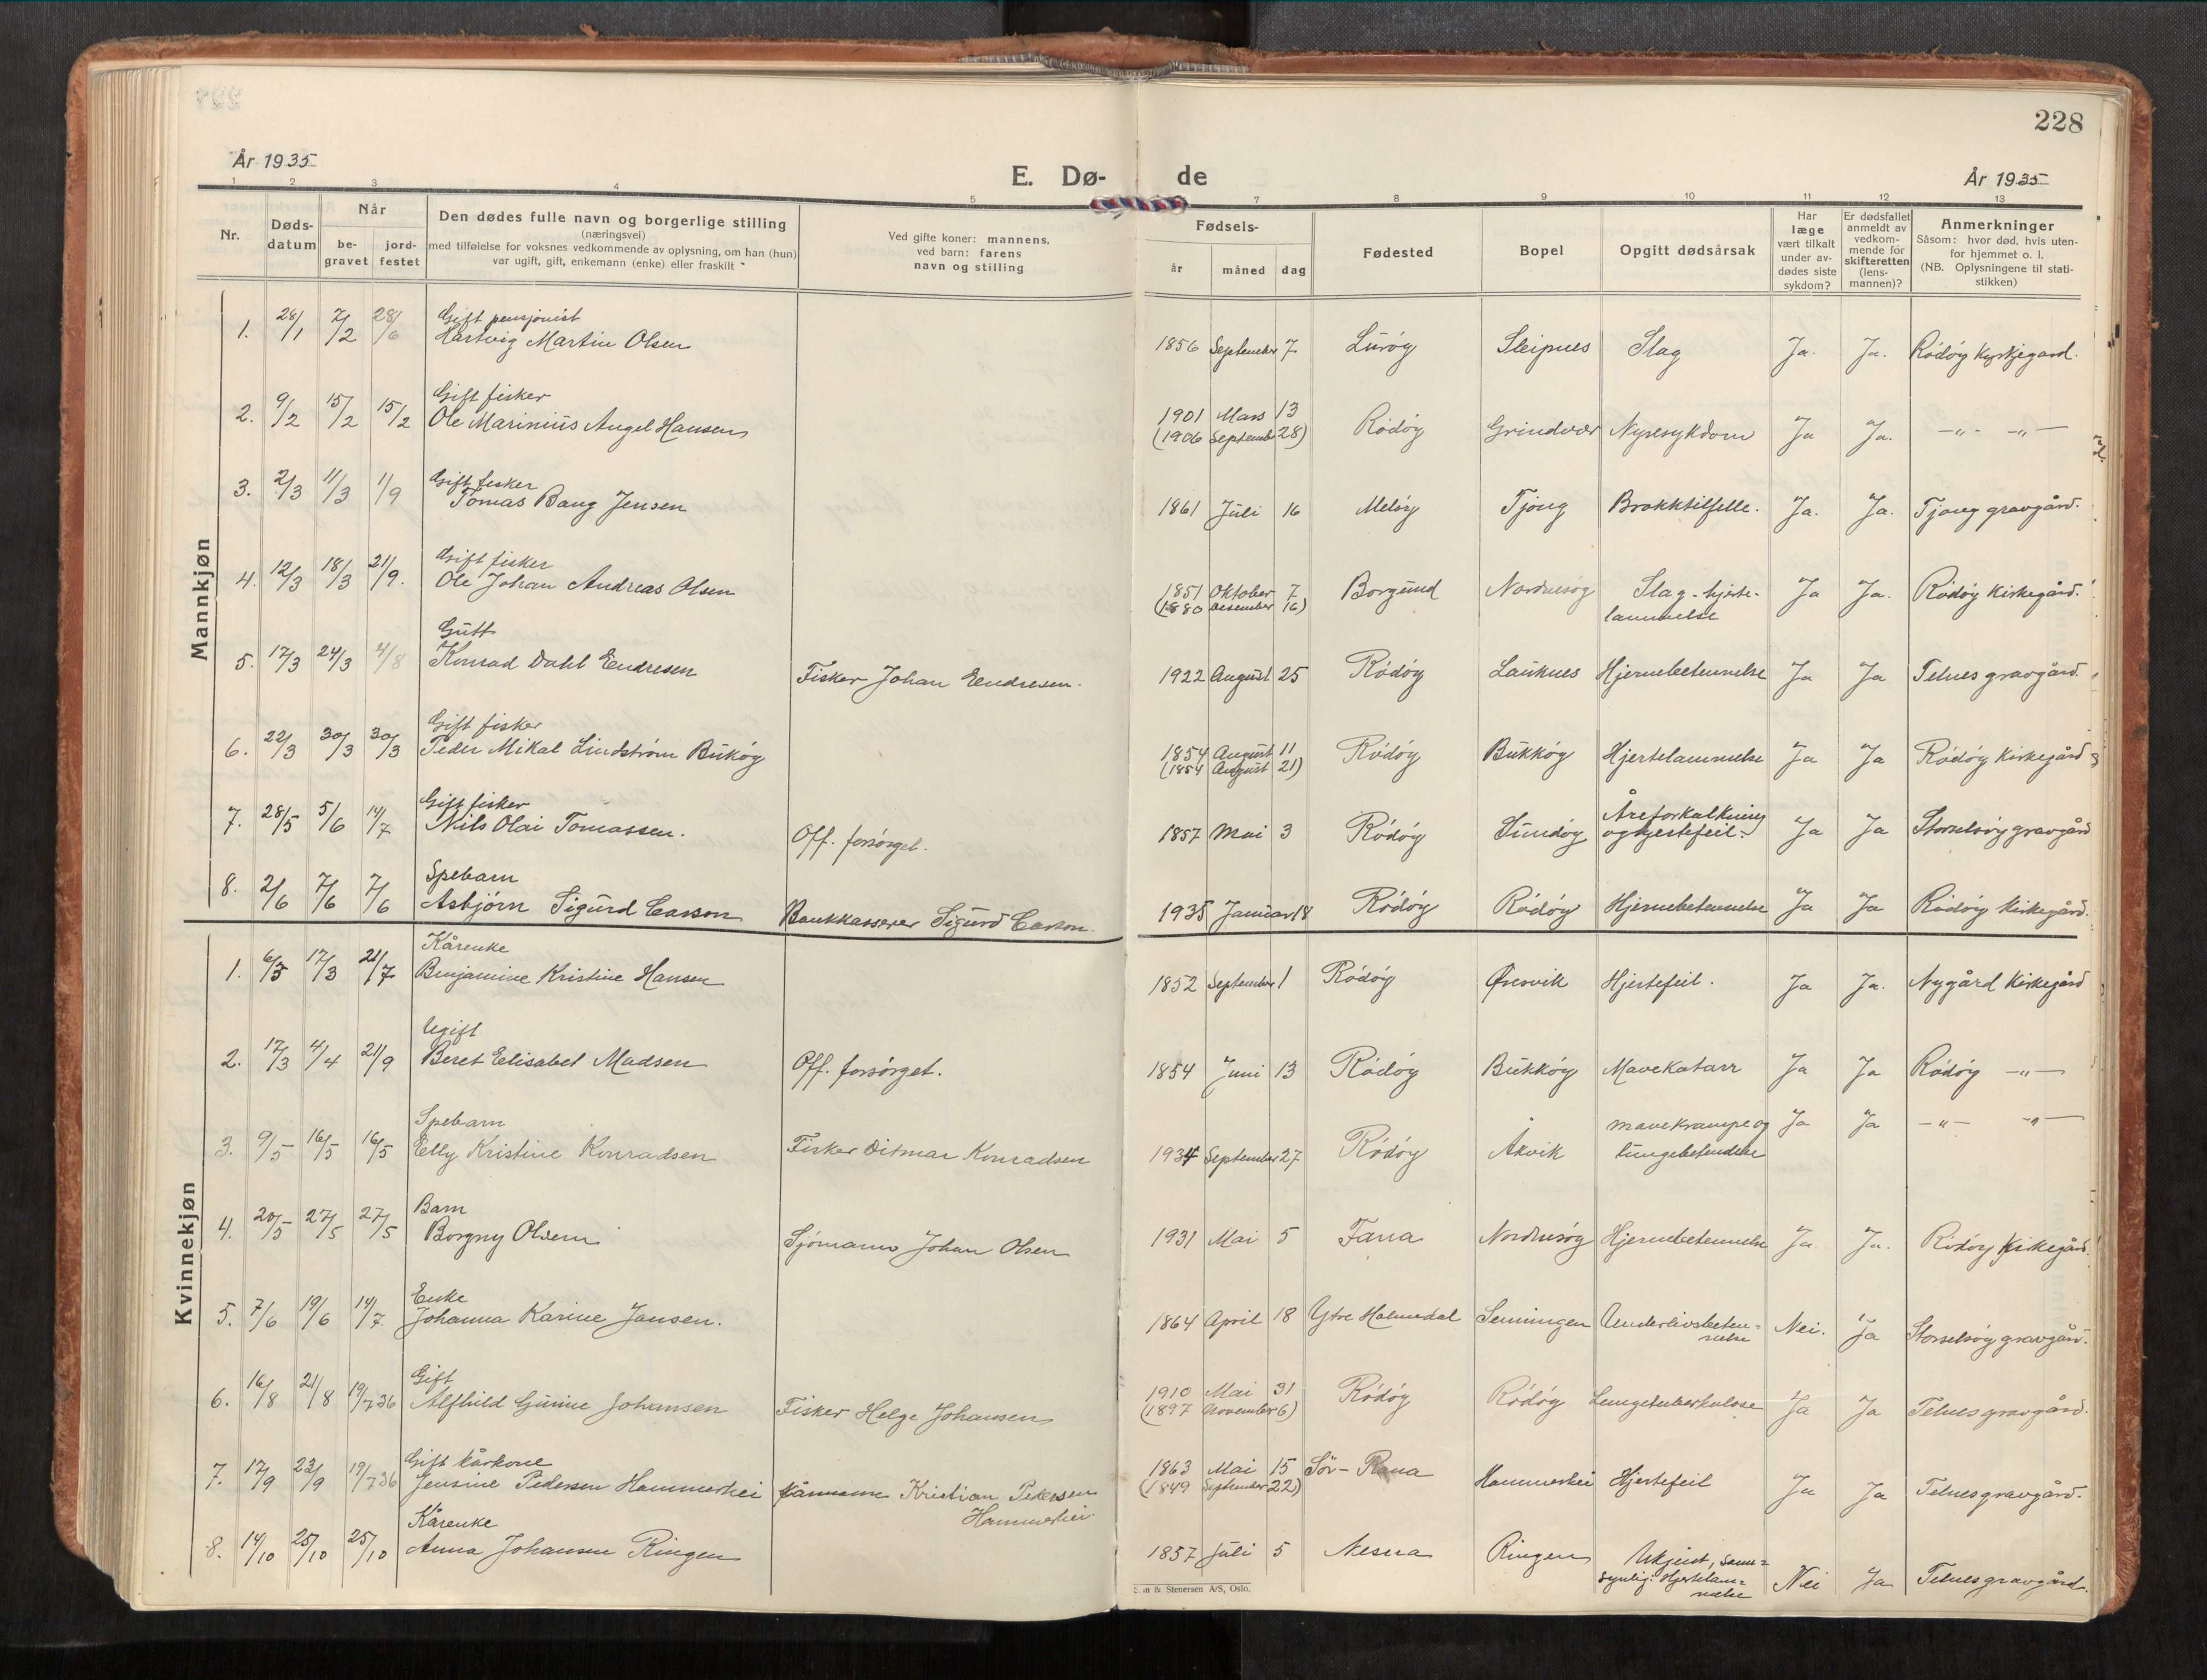 228
År 1935
E. Dø- de
År 1935
1 2 3 4 5 7 8 9 10 11 12 13
Nr.
Døds-
datum
Når
be-
gravet
jord-
festet
Den dødes fulle navn og borgerlige stilling
(næringsvei)
med tilføielse for voksnes vedkommende av oplysning, om han (hun)
var ugift, gift, enkemann (enke) eller fraskilt
Ved gifte koner: mannens,
ved barn: farens
navn og stilling
Fødsels-
år måned dag
Fødested
Bopel
Opgitt dødsårsak
Har
læge
vært tilkalt
under av-
dødes siste
sykdom?
Er dødsfallet
anmeldt av
vedkom-
mende for
skifteretten
(lens-
mannen)?
Anmerkninger
Såsom: hvor død, hvis uten-
for hjemmet o. l.
(NB. Oplysningene til stati-
stikken)
Mannkjøn
Gift pensjonist
1. 28/1 7/2 28/6 Hartvig Martin Olsen 1856 September 7 Lurøy Sleipnes Slag Ja. Ja. Rødøy Kyrkjegard.
Gift fisker
2. 9/2 15/2 15/2 Ole Marinius Angel Hansen 1901 Mars 13 Rødøy Grindvær Nyresykdom Ja Ja. —„— —„—
(1906 September 28)
Gift fisker
3. 2/3 11/3 1/9 Tomas Bang Jensen 1861 Juli 16 Meløy Tjong Brokktilfelle. Ja. Ja. Tjong gravgård.
Gift fisker
4. 12/3 18/3 21/9. Ole Johan Andreas Olsen 1851 Oktober 7 Borgund Nordnesøy Slag - hjerte- Ja Ja. Rødøy Kirkegård.
(1880 Desember 16) lammelse
Gutt
5. 17/3 24/3 4/8 Konrad Dahl Endresen Fisker Johan Endresen. 1922 August 25 Rødøy Lauknes Hjernebetennelse Ja Ja Telnes gravgård.
Gift fisker
6. 22/3 30/3 30/3 Peder Mikal Lindstrøm Bukøy 1854 August 11 Rødøy Bukkøy Hjertelammelse Ja Ja Rødøy Kirkegård
(1854 August 21)
Gift fisker
7. 28/5 5/6 14/7 Nils Olai Tomassen. Off. forsørget. 1857 Mai 3 Rødøy Sundøy Åreforkalkning Ja Ja Storselsøy gravgård
og hjertefeil.
Spebarn
8. 2/6 7/6 7/6 Asbjørn Sigurd Carson Bankkasserer Sigurd Carson. 1935 Januar 18 Rødøy Rødøy Hjernebetennelse Ja Ja Rødøy Kirkegård.
Kvinnekjøn
Kårenke
1. 6/3 17/3 21/7 Benjamine Kristine Hansen 1852 September 1 Rødøy Øresvik Hjertefeil. Ja Ja. Nygård Kirkegård
Ugift
2. 17/3 4/4 21/9 Beret Elisabet Madsen Off. forsørget. 1854 Juni 13 Rødøy Bukkøy Mavekatarr Ja Ja Rødøy —„—
Spebarn
3. 9/5 16/5 16/5 Elly Kristine Konradsen Fisker Ditmar Konradsen 1934 September 27 Rødøy Åkvik mavekrampe og Ja Ja —„— —„—
lungebetendelse
Barn
4. 20/5 27/5 27/5 Borgny Olsen Sjømann Johan Olsen 1931 Mai 5 Fana Nordnesøy Hjernebetennelse Ja Ja. Rødøy Kirkegård.
Enke
5. 7/6 19/6 14/7. Johanna Karine Jansen. 1864 April 18 Ytre Holmedal Senningen Underlivsbeten- Nei. Ja Storselsøy gravgård.
nelse
Gift
6. 16/8 21/8 19/7 36 Alfhild Gunine Johansen Fisker Helge Johansen 1910 Mai 31 Rødøy Rødøy Lungetuberkulose Ja Ja Telnes gravgård.
(1897 November 6)
Gift kårkone
7. 17/9 23/9 19/7 36 Jensine Pedersen Hammerhei Kårmann Kristian Pedersen 1863 Mai 15 Sør-Rana Hammerhei Hjertefeil Ja Ja Telnes gravgård.
Hammerhei. (1849 September 22)
Kårenke
8. 14/10 25/10 25/10 Anna Johansen Ringen 1857 Juli 5 Nesna Ringen Ukjent, sann= Nei Ja Telnes gravgård.
synlig: Hjertelam=
melse
& Stenersen A/S, Oslo.